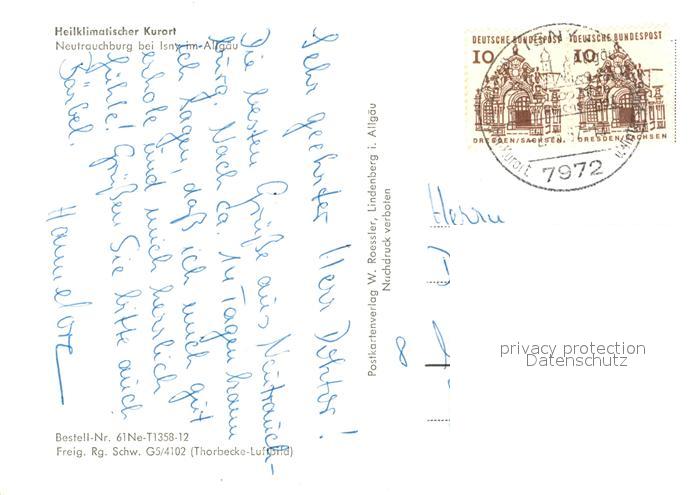 Heilklimatischer Kurort
Neutrauchburg bei Isny im Allgäu
Sehr geehrter Herr
Die besten Grüße aus Neutrauch-
burg. Nach ca. 14 Tagen kann
ich sagen, daß ich mich gut
erhole und mich herrlich
fühle! Grüßen Sie bitte auch
Bärbel.
Hannelore
Bestell-Nr. 61Ne-T1358-12
Freig. Rg. Schw. G5/4102 (Thorbecke-Luftbild)
Postkartenverlag W. Roessler, Lindenberg i. Allgäu
Nachdruck verboten
DEUTSCHE BUNDESPOST
10
DRESDEN/SACHSEN
DEUTSCHE BUNDESPOST
10
DRESDEN/SACHSEN
ISNY
7972
Herrn
8
privacy protection
Datenschutz